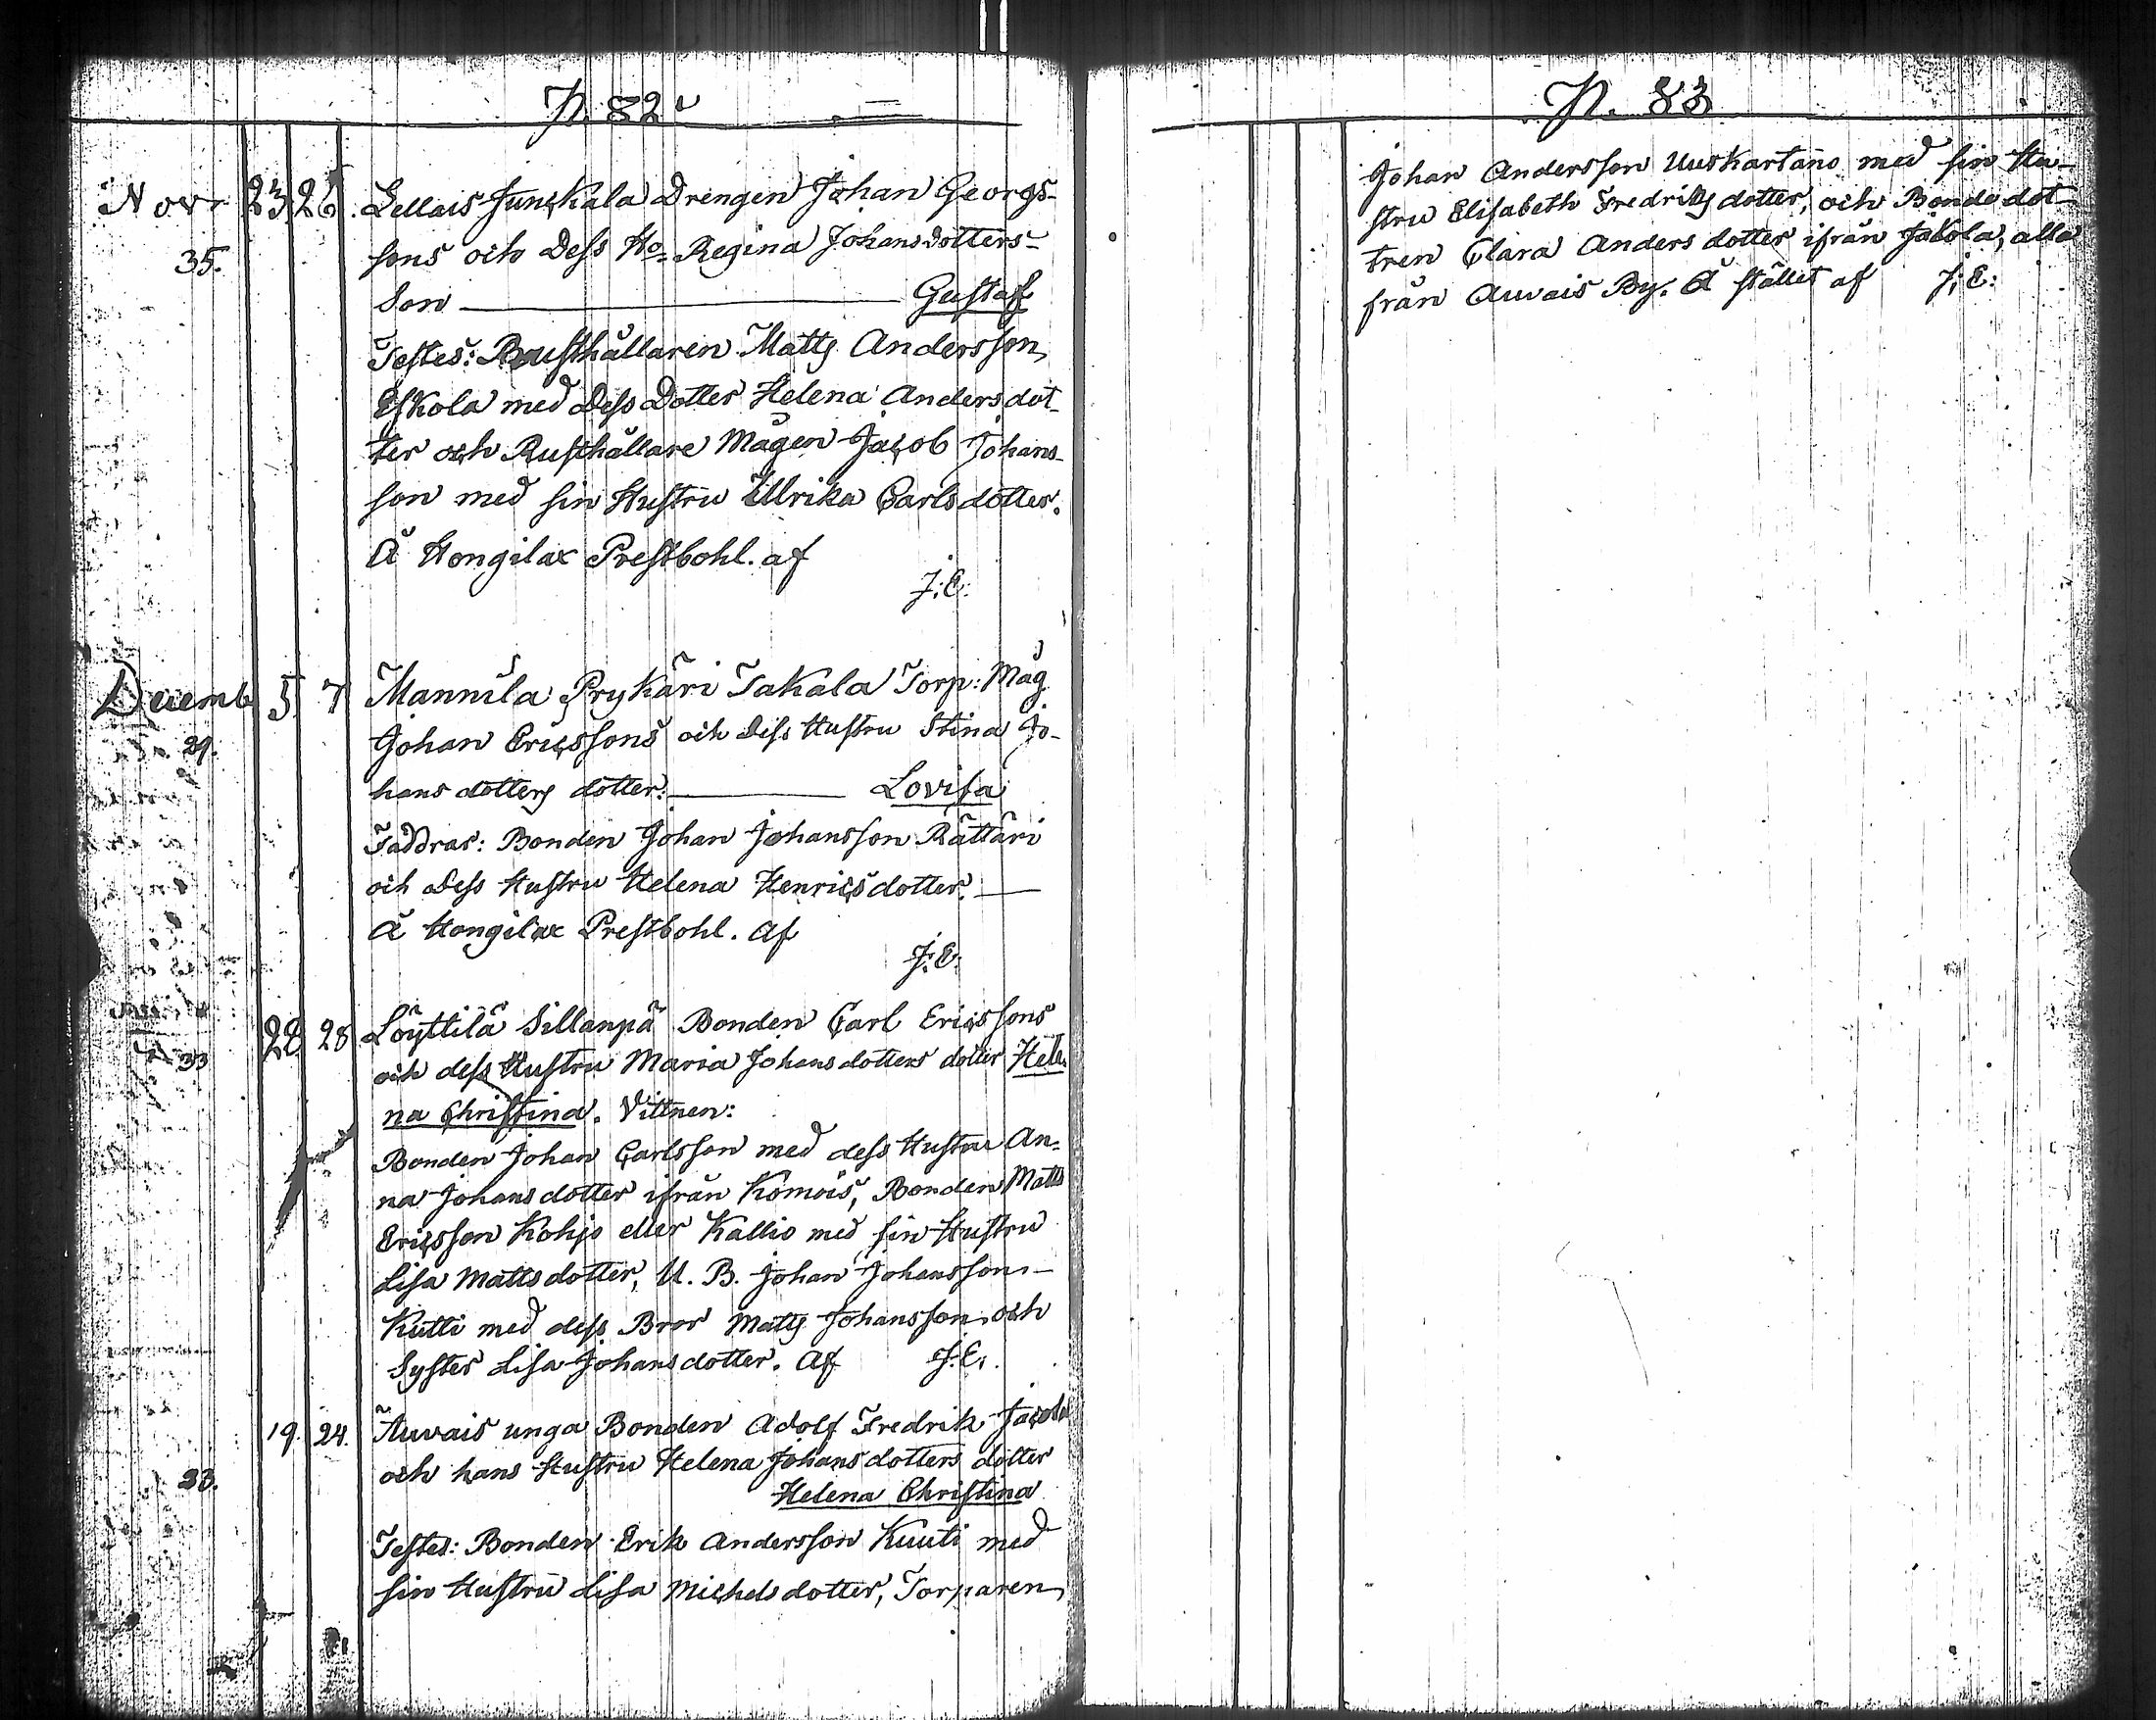 P. 82
Nov 23 26. Lellais Junkala Drengen Johan Georgs-
35. sons och Dess Ho. Regina Johansdotters
Son Gustaf
Testes: Rusthållaren Matts Andersson
Eskola med Dess Dotter Helena Andersdot-
ter och Rusthållare Mågen Jacob Johans-
son med sin Hustru Ulrika Carlsdotter.
Å Hongilax Prestbohl. af
J:E:
Decemb 5 7 Mannila Prykäri Takala Torp: Måg
29. Johan Ericssons och Dess Hustru Stina Jo-
hansdotters dotter. Lovisa
Faddras: Bonden Johan Johansson Rättäri
och Dess Hustru Helena Henricsdotter.
Å Hongilax Prestbohl. Af
J:E:
28 Löyttilä Sillanpä Bonden Carl Ericssons
33 och dess Hustru Maria Johansdotters dotter Hele
na Christina. Vittnen:
Bonden Johan Carlsson med dess Hustru An-
na Johansdotter ifrån Komois, Bonden Matts
Ericsson Kohjo eller Kallio med sin Hustru
Lisa Mattsdotter, U. B. Johan Johansson
Kutti med dess Bror Matts Johansson och
Syster Lisa Johansdotter. Af J:E:
19. 24. Auvais unga Bonden Adolf Fredrik Jacobs
33. och hans Hustru Helena Johansdotters dotter
Helena Christina
Testes: Bonden Erik Andersson Kuuti med
sin Hustru Lisa Michelsdotter, Torparen
P. 83
Johan Andersson Uuskartano med sin Hu-
stru Elisabeth Fredriksdotter, och Bondedot
tren Clara Andersdotter ifrån Jakola, alla
från Auvais By. Å stället af J:E: